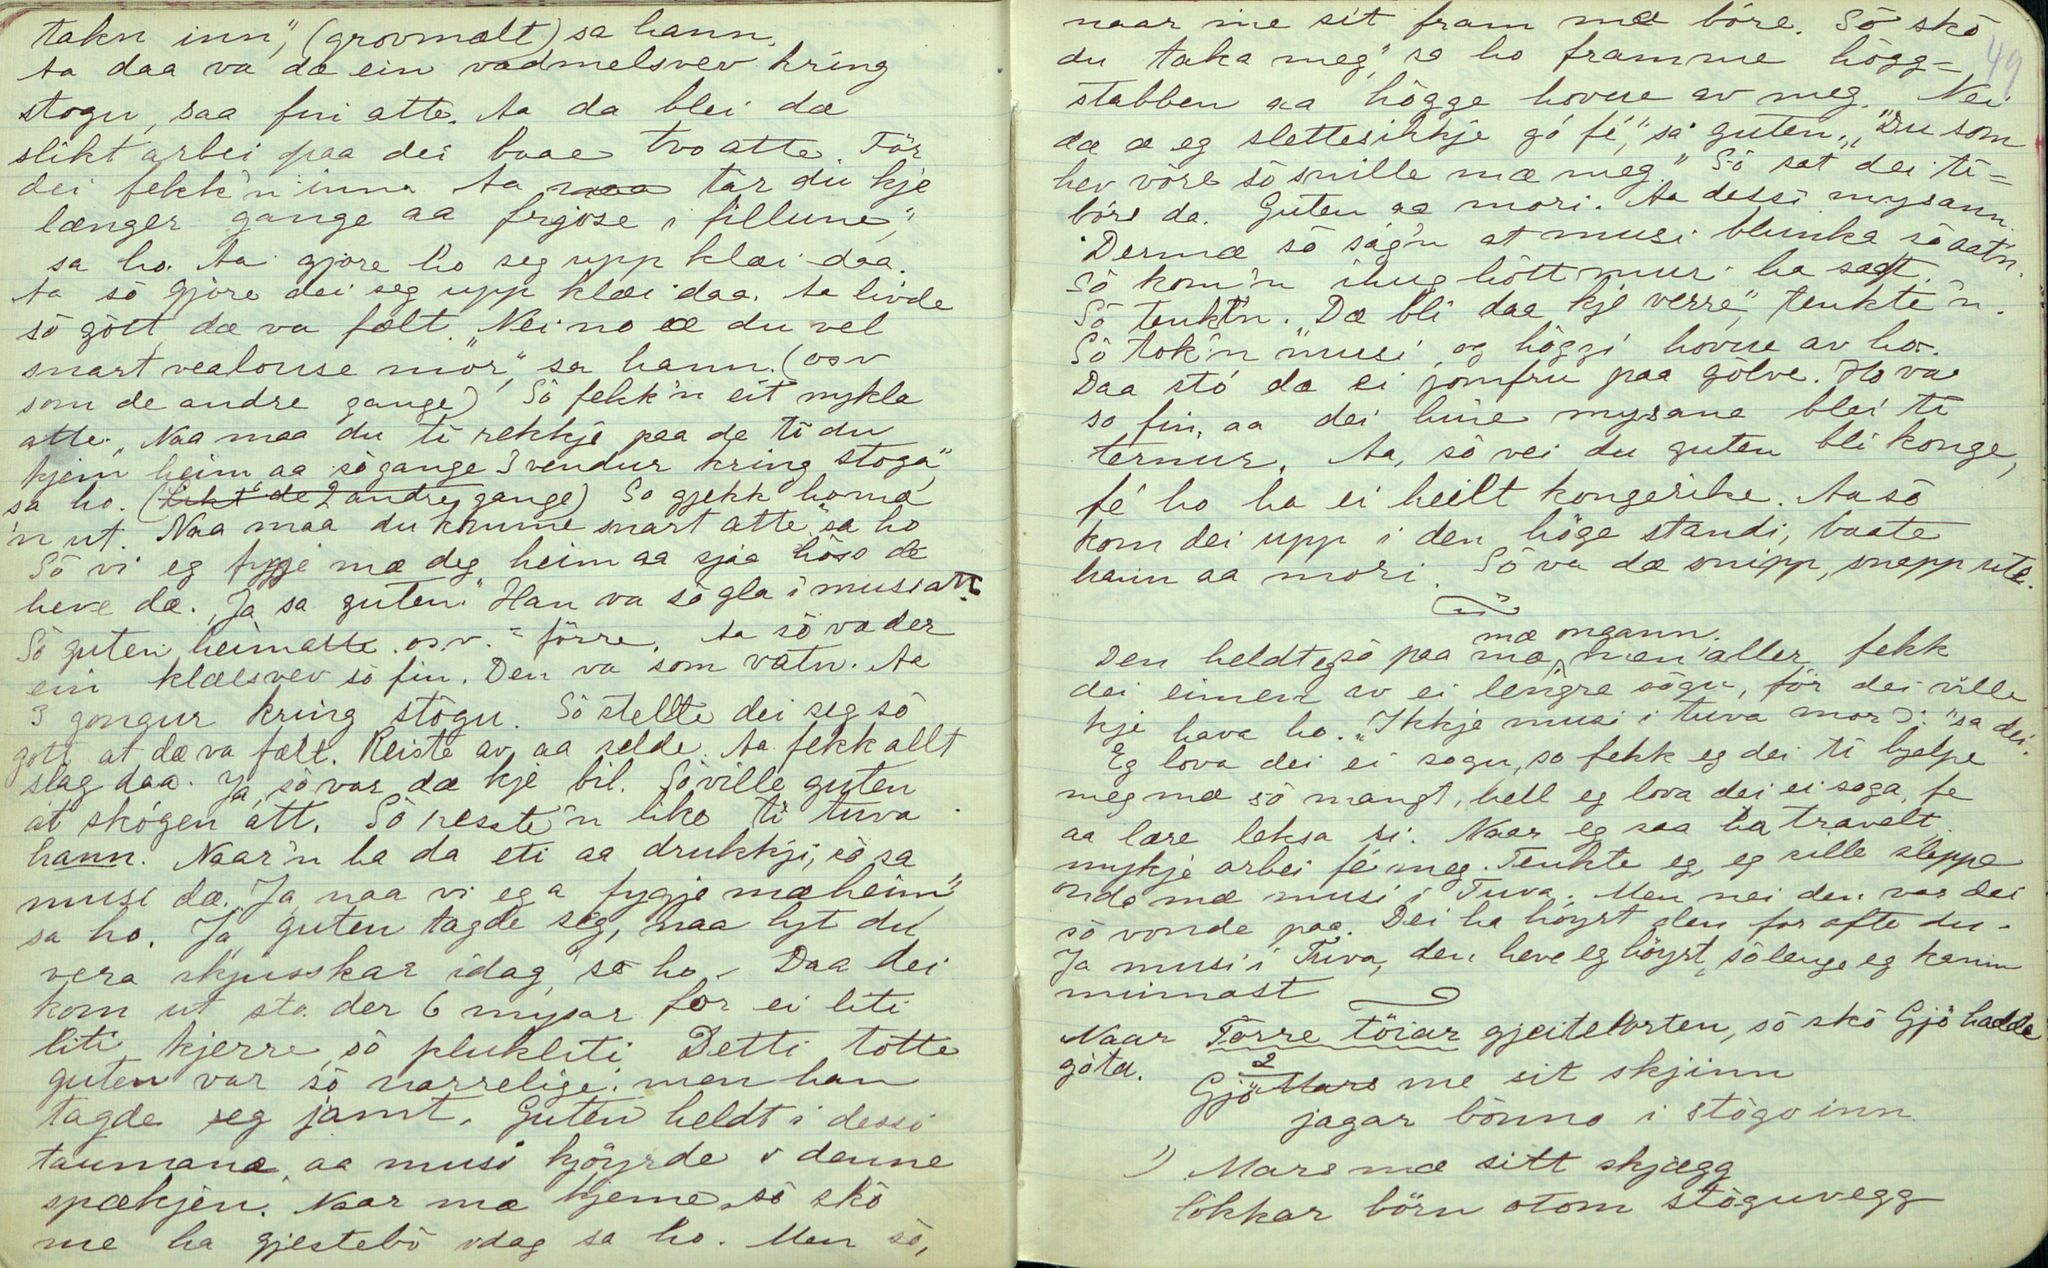 takn inn", (grovmælt) sa hann.
Aa daa va dæ ein vadmelsvev kring
stogu, saa fin atte. Aa da blei dæ
slikt arbei paa dei baae two atte. Før
dei fekk'n inn. Aa naa tar du kje
længer gange aa frjose i fillune",
sa ho. Aa gjore ho seg upp klæi daa.
Aa sö gjöre dei seg upp klæi daa. Aa livde
sö gött dæ va fælt. Nei no æ du vel
snart vealouse mor", sa hann. (osv
som de andre gange) Sö fekk'n eit nykla
atte. "Naa maa du ti rekkje paa de ti du
kjem heim aa sö gange 3 vendur kring stoga",
sa ho. (Likt de 2 andre gange) So gjekk ho mæ
'n ut. Naa maa du komme snart atte, "sa ho
Sö vi eg fygje mæ deg heim aa sjaa höso de
heve dæ. "Ja sa guten." Han va sö gla i musi atte.
Sö guten heimatte .osv. = förre. Aa sö va der
ein klæesvev sö fin. Den va som vatn. Aa
3 gongur kring stögu. Sö stellte dei seg sö
gott at dæ va fælt. Reiste av aa selde. Aa fekk allt
slag daa. Ja, sö var dæ kje bil. Sö ville guten
at skógen att. Sö resste'n like ti tuva
hann. Naar'n ha da eti aa drukkji, sö sa
musi dæ. "Ja naa vi eg a fygje mæ heim"
sa ho. Ja guten tagde seg, "naa lyt du
vera skjusskar idag", sa ho. Daa dei
kom ut sto der 6 mysar for ei liti
liti kjerre, sö plukliti Detti totte
guten var sö narrelige. men han
tagde seg jamt. Guten heldt i dessi
taumane, aa musi kjöyrde i denne
spækjen. Naar mæ kjeme, sö skö
me ha gjestebö idag sa ho. Men sö,
49
naar me sit fram mæ böre. Sö skö
du taka meg," sa ho framme högg=
stabben aa högge hovue av meg. Nei
dæ æ eg slettesikkje gó fé," sa guten. "Du som
hev vöre sö snille mæ meg." Sö sat dei ti=
börs da. Guten aa mori. Aa dessi mysann.
Dermæ sö ság'n at musi blunka sö aat'n.
Sö kom'n ihug hött mur ha sagt.
Sö tenkt'n. "Dæ bli daa kje verre", tenkte'n.
Sö tok'n musi og höggji hovue av ho.
Daa stó dæ ei jomfru paa gölve. Ho va
so fin, aa dei hine mysane blei ti
ternur. Aa, sö vei du guten bli konge,
fé ho ha ei heilt kongerike. Aa sö
kom dei upp i den höge standi, baate
hann aa mori. Sö va dæ snipp, snapp ute.
mæ ongann.
Den heldt eg sö paa mæ, men aller fekk
dei eimen av ei lengre sögu, för dei ville
kje hava ho. "Ikkje musi i tuva mor": "sa dei.
Eg lova dei ei sogu, so fekk eg dei ti hjelpe
meg mæ sö mangt, hell eg lova dei ei soga, fe
aa lære leksa si. Naar eg saa ha travelt,
mykje arbei fé meg. Tenkte eg, eg sille sleppe
onda mæ musi i Tuva. Men nei den var dei
sö vonde paa. Dei ha höyrt den for ofte du.
Ja musi i Tuva, den heve eg höyrt, sö lenge eg kann
minnast
Naar Torre töiar gjeitelorten, sö skö Gjö hadde
góta.
2
Gjö Mars me sit skjinn
jagar bönno i stögo inn
1) Mars mæ sitt skjægg
lökkar börn otom stöguvegg